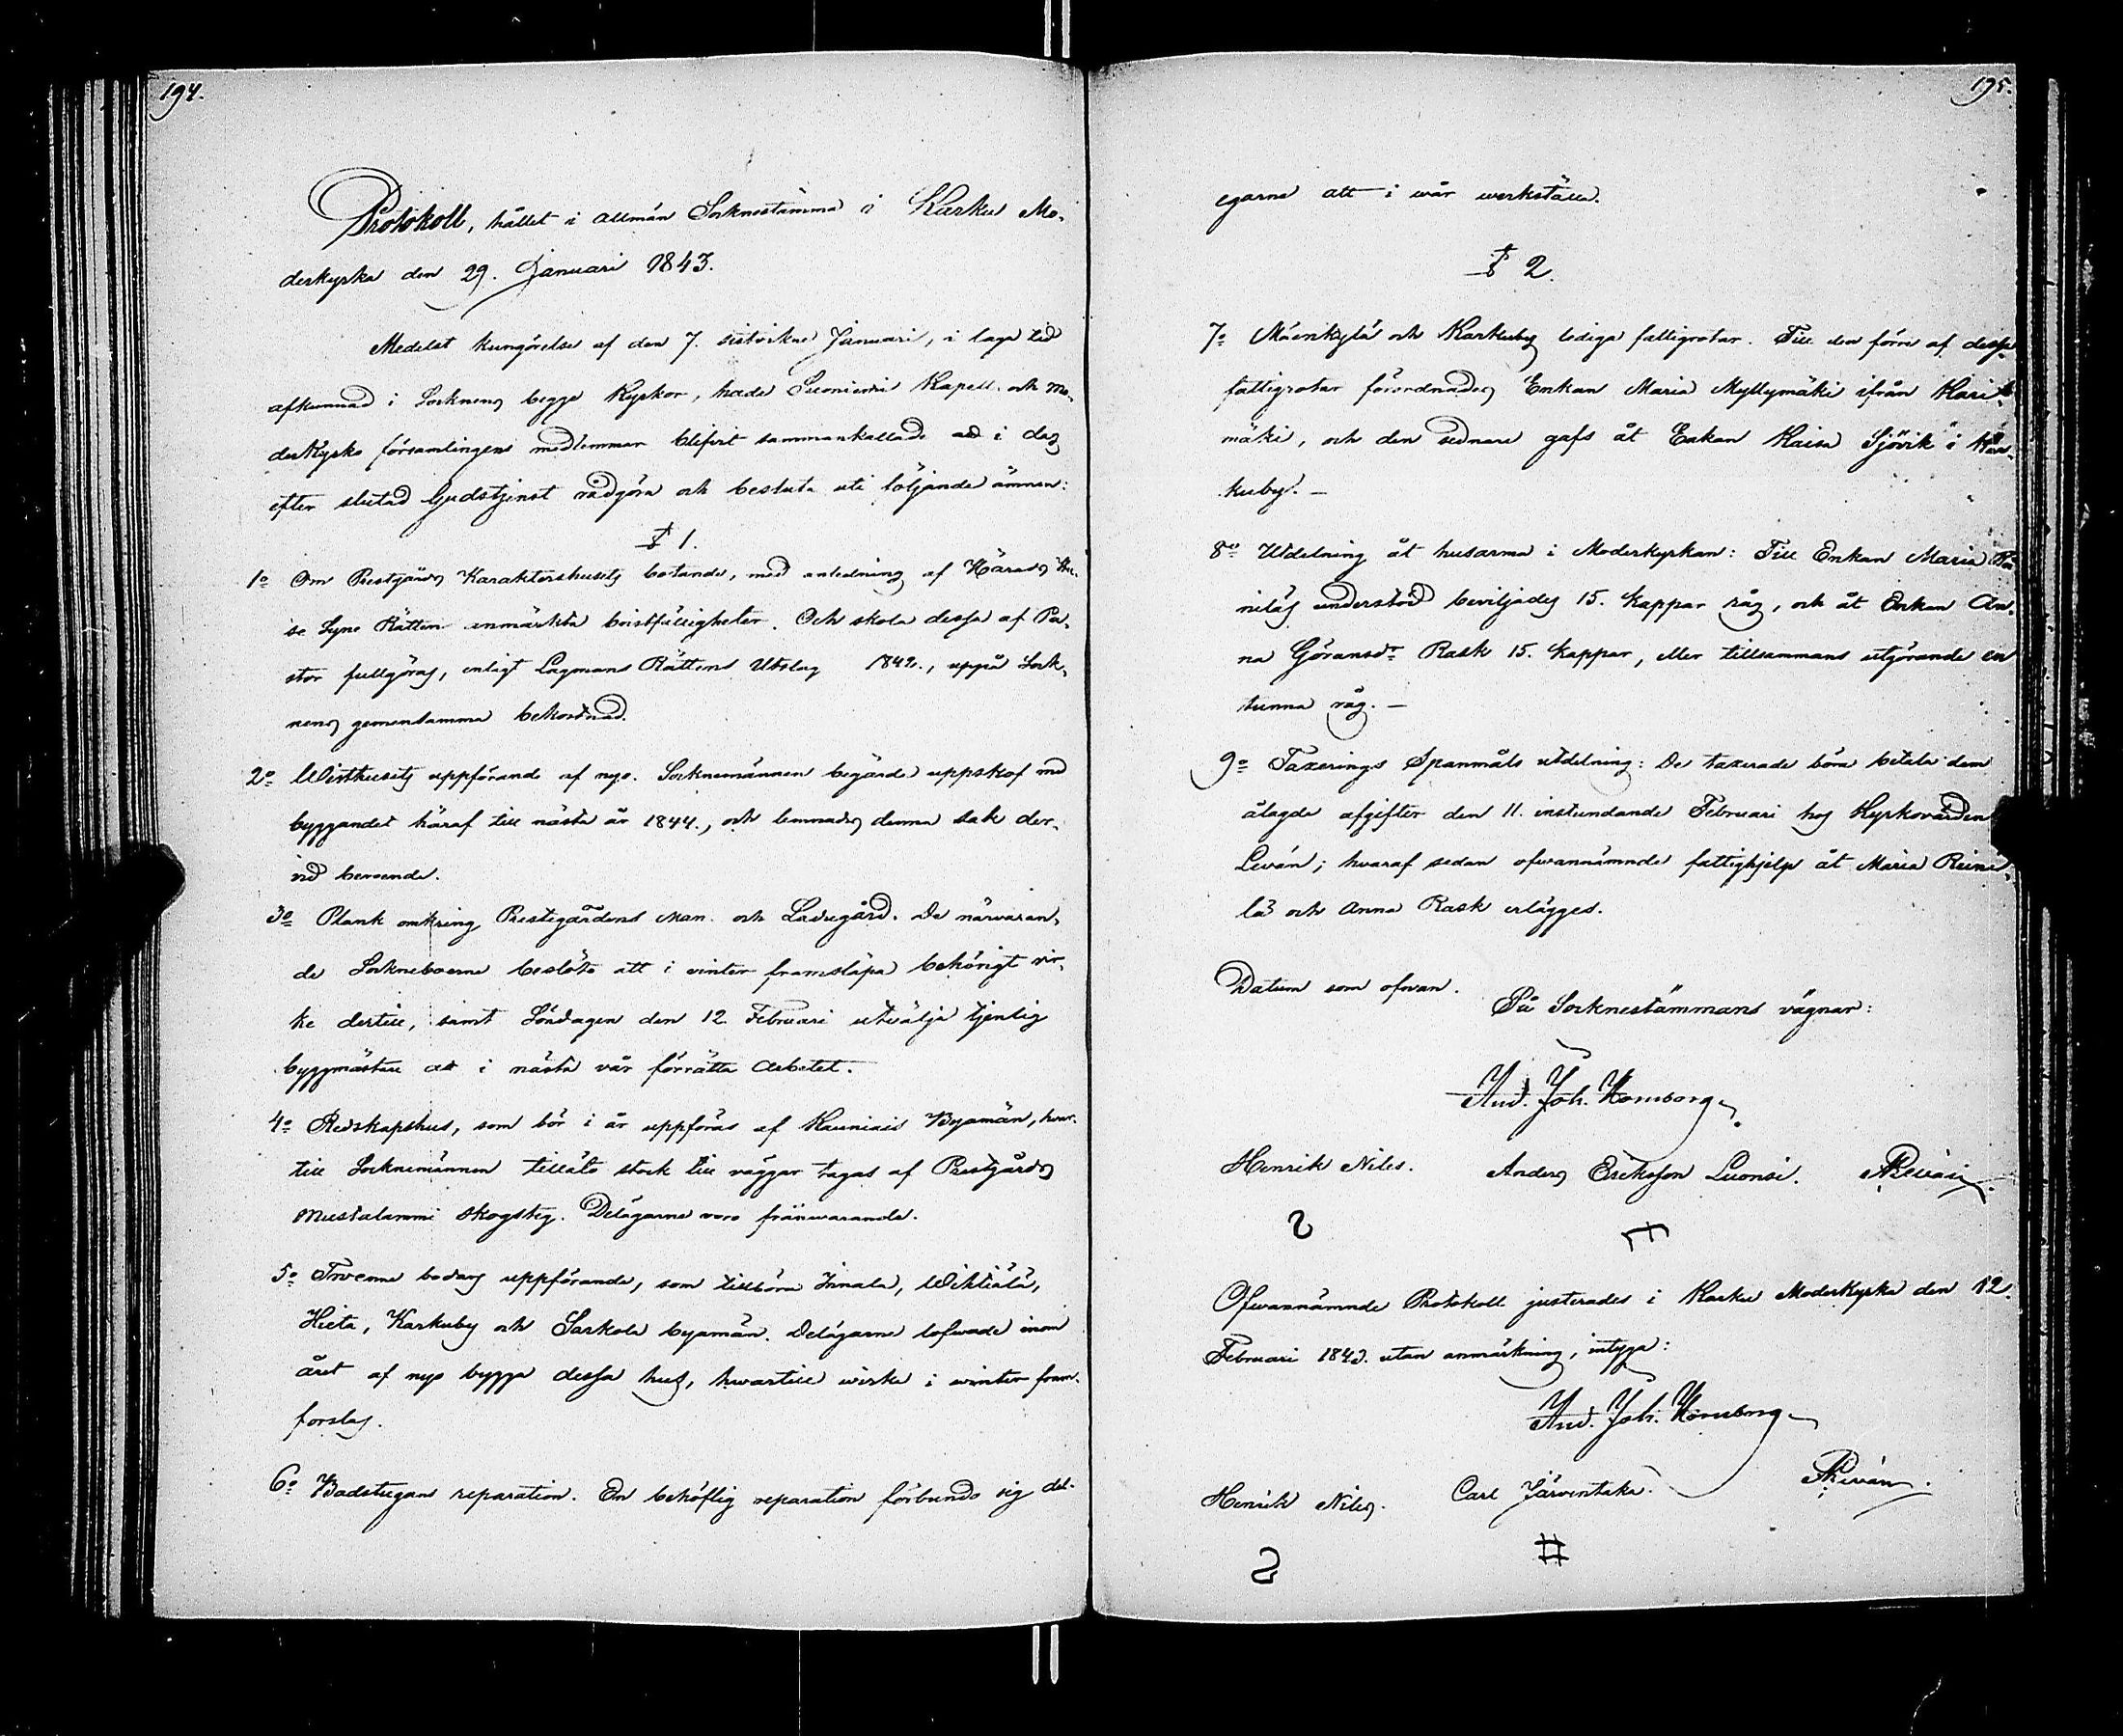 194.
Protokoll, hållet i allmän Socknestämma i Karku Mo-
derkyrka den 29. Januari 1843.
Medelst kungörelse af den 7. sistvikne Januari, i laga tid
afkunnad i Socknens begge Kyrkor, hade Suoniemi Kapell- och Mo-
derkyrko församlingens medlemmar blifvit sammankallade att i dag
efter slutad Gudstjenst rådgöra och besluta uti följande ämnen:
§ 1.
1o Om Prestgårds Karaktershusets botande, med anledning af Härads Hu-
se Syne Rätten anmärkta bristfälligheter. Och skola dessa af Pa-
stor fullgöras, enligt Lagmans Rättens Utslag 1842., uppå Sock-
nens gemensamma bekostnad.
2o Wisthusets uppförande af nyo. Socknemännen begärde uppskof med
byggandet häraf till nästa år 1844., och lemnades denna sak der-
vid beroende.
3o Plank omkring Prestegårdens Man- och Ladugård. De närvaran-
de Sockneboerne beslöto att i vinter framsläpa behörigt vir-
ke dertill, samt Söndagen den 12. Februari utvälja tjenlig
byggmästare att i nästa vår förrätta arbetet.
4o Redskapshus, som bör i år uppföras af Kauniais Byamän, hvar-
till Socknemännen tilläto stock till väggar tagas af Prestgårds
Mustalammi skogsteg. Delägarne voro frånwarande.
5o Tvenne bodars uppförande, som tillhöra Innala, Wihtiälä,
Hieta, Karkuby och Sarkola byamän. Delägarne lofwade inom
året af nyo bygga dessa hus, hwartill wirke i winter fram-
forslas.
6o Badstugans reparation. En behöflig reparation förbundo sig del-
195.
egarne att i wår werkställa.
§ 2.
7o Mäenkylä och Karkuby lediga fattigrotar. Till den förre af dessa
fattigrotar förordnades Enkan Maria Myllymäki ifrån Hari-
mäki, och den sednare gafs åt Enkan Kaisa Sjövik i Kar-
kuby. —
8o Utdelning åt husarma i Moderkyrkan: Till Enkan Maria
niläs understöd beviljades 15. kappar råg, och åt Enkan An-
na Göransdr Rask 15. kappar, eller tillsammans utgörande en
tunna råg. —
9o Taxerings Spanmåls utdelning: De taxerade böra betala dem
ålagde afgifter den 11. instundande Februari hos Kyrkovärden
Leván; hvaraf sedan ofwannämnde fattighjelp åt Maria Reini-
lä och Anna Rask erlägges.
Datum som ofwan.
På Socknestämmans vägnar:
And. Joh. Hornborg
Henrik Niles. Anders Ericksson Luonsi.
Ofwannämnde Protokoll justerades i Karku Moderkyrka den 12.
Februari 1843. utan anmärkning, intyga:
And. Joh. Hornborg
Henrik Niles. Carl Järventaka.